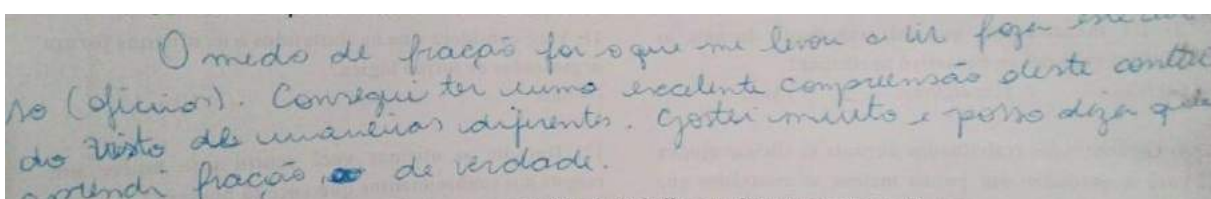 O medo de fração foi o que me levou a vir fazer este cur
so (oficinas). Consegui ter uma excelente compreensão deste conteú
do visto de maneiras diferentes. Gostei muito e posso dizer que
aprendi fração de verdade.